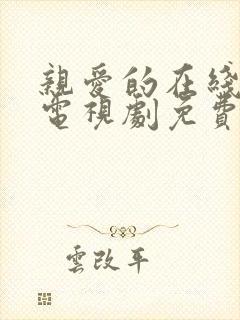 親愛的在綫
電視劇免費
雲改平